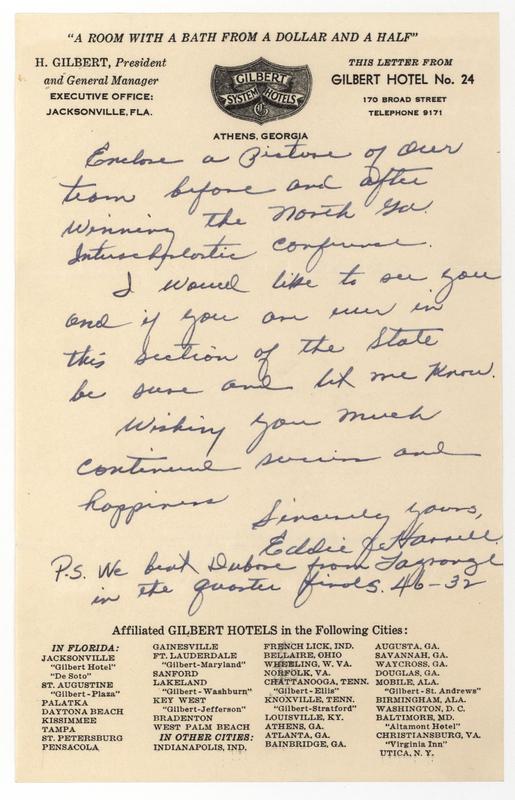 "A ROOM WITH A BATH FROM A DOLLAR AND A HALF"
H. GILBERT, President
and General Manager
EXECUTIVE OFFICE:
JACKSONVILLE, FLA.
GILBERT
SYSTEM HOTELS
G
ATHENS, GEORGIA
THIS LETTER FROM
GILBERT HOTEL No. 24
170 BROAD STREET
TELEPHONE 9171
Enclose a Picture of Our
team before and after
winning the North Ga.
Interscholastic Conference.
I would like to see you
and if you are ever in
this section of the State
be sure and let me know.
Wishing you much
continued success and
happiness
Sincerely yours,
Eddie J. Harrell.
P.S. We beat Dubose from Lagrange
in the quarter finals. 46-32
Affiliated GILBERT HOTELS in the Following Cities:
IN FLORIDA:
JACKSONVILLE
"Gilbert Hotel"
"De Soto"
ST. AUGUSTINE
"Gilbert-Plaza"
PALATKA
DAYTONA BEACH
KISSIMMEE
TAMPA
ST. PETERSBURG
PENSACOLA
GAINESVILLE
FT. LAUDERDALE
"Gilbert-Maryland"
SANFORD
LAKELAND
"Gilbert-Washburn"
KEY WEST
"Gilbert-Jefferson"
BRADENTON
WEST PALM BEACH
IN OTHER CITIES:
INDIANAPOLIS, IND.
FRENCH LICK, IND.
BELLAIRE, OHIO
WHEELING, W. VA.
NORFOLK, VA.
CHATTANOOGA, TENN.
"Gilbert-Ellis"
KNOXVILLE, TENN.
"Gilbert-Stratford"
LOUISVILLE, KY.
ATHENS, GA.
ATLANTA, GA.
BAINBRIDGE, GA.
AUGUSTA, GA.
SAVANNAH, GA.
WAYCROSS, GA.
DOUGLAS, GA.
MOBILE, ALA.
"Gilbert-St. Andrews"
BIRMINGHAM, ALA.
WASHINGTON, D. C.
BALTIMORE, MD.
"Altamont Hotel"
CHRISTIANSBURG, VA.
"Virginia Inn"
UTICA, N. Y.